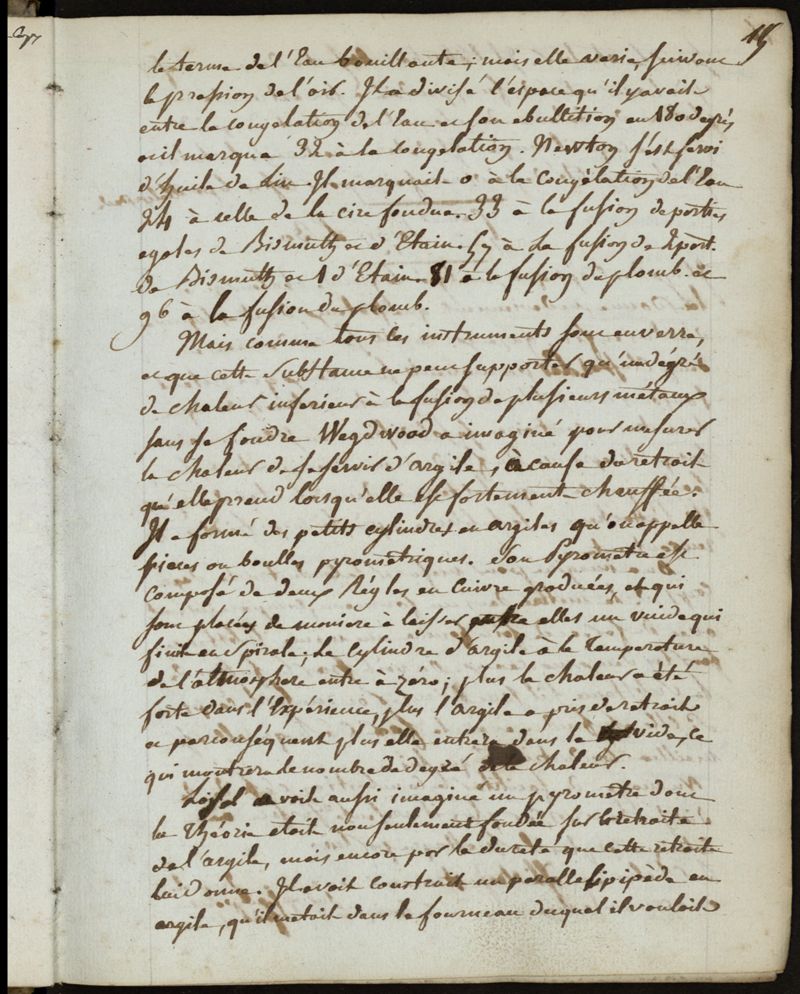 15
le terme de l'Eau bouillante; mais elle varie suivant
la pression de l'air. Il a divisé l'espace qu'il y avait
entre la congelation de l'Eau et son ebullition en 180 degrés
et il marqua 32 à la congelation. Newton s'est servi
d'huile de Lin. Il marquait 0 à la Congélation de l'Eau
24 à celle de la cire fondue. 33 à la fusion de parties
egales de Bismuth et d'Etain. 57 à la fusion de 2 part.
de Bismuth et 1 d'Etain. 81 à la fusion de plomb. et
96 à la fusion du plomb.
Mais comme tous les instruments sont en verre,
et que cette substance ne peut supporter qu'un dégré
de chaleur inferieur à la fusion de plusieurs métaux
sans se fondre Wegdwood a imaginé pour mesurer
la chaleur de se servir d'argile, à cause du retrait
qu'elle prend lorsqu'elle est fortement chauffée.
Il a formé des petits cylindres en argiles qu'on appelle
pieces ou boulles pyrometriques. Son Pyrometre est
composé de deux Régles en Cuivre graduées, et qui
sont placées de maniere à laisser entre elles un vuide qui
finit en spirale; Le Cylindre d'argile à la Temperature
de l'atmosphere entre à zéro; plus la chaleur a été
forte dans l'Expérience, plus l'argile a pris de retrait
et parconsequent plus elle entrera dans le vide, ce
qui montrera le nombre de degré de la chaleur.
avoit aussi imaginé un pyrometre dont
la Théorie etoit non seulement fondée sur le retrait
de l'argile, mais encore par la dureté que cette retraite
lui donne. Il avoit construit un parallelipipède en
argile, qu'il mettoit dans le fourneau duquel il vouloit